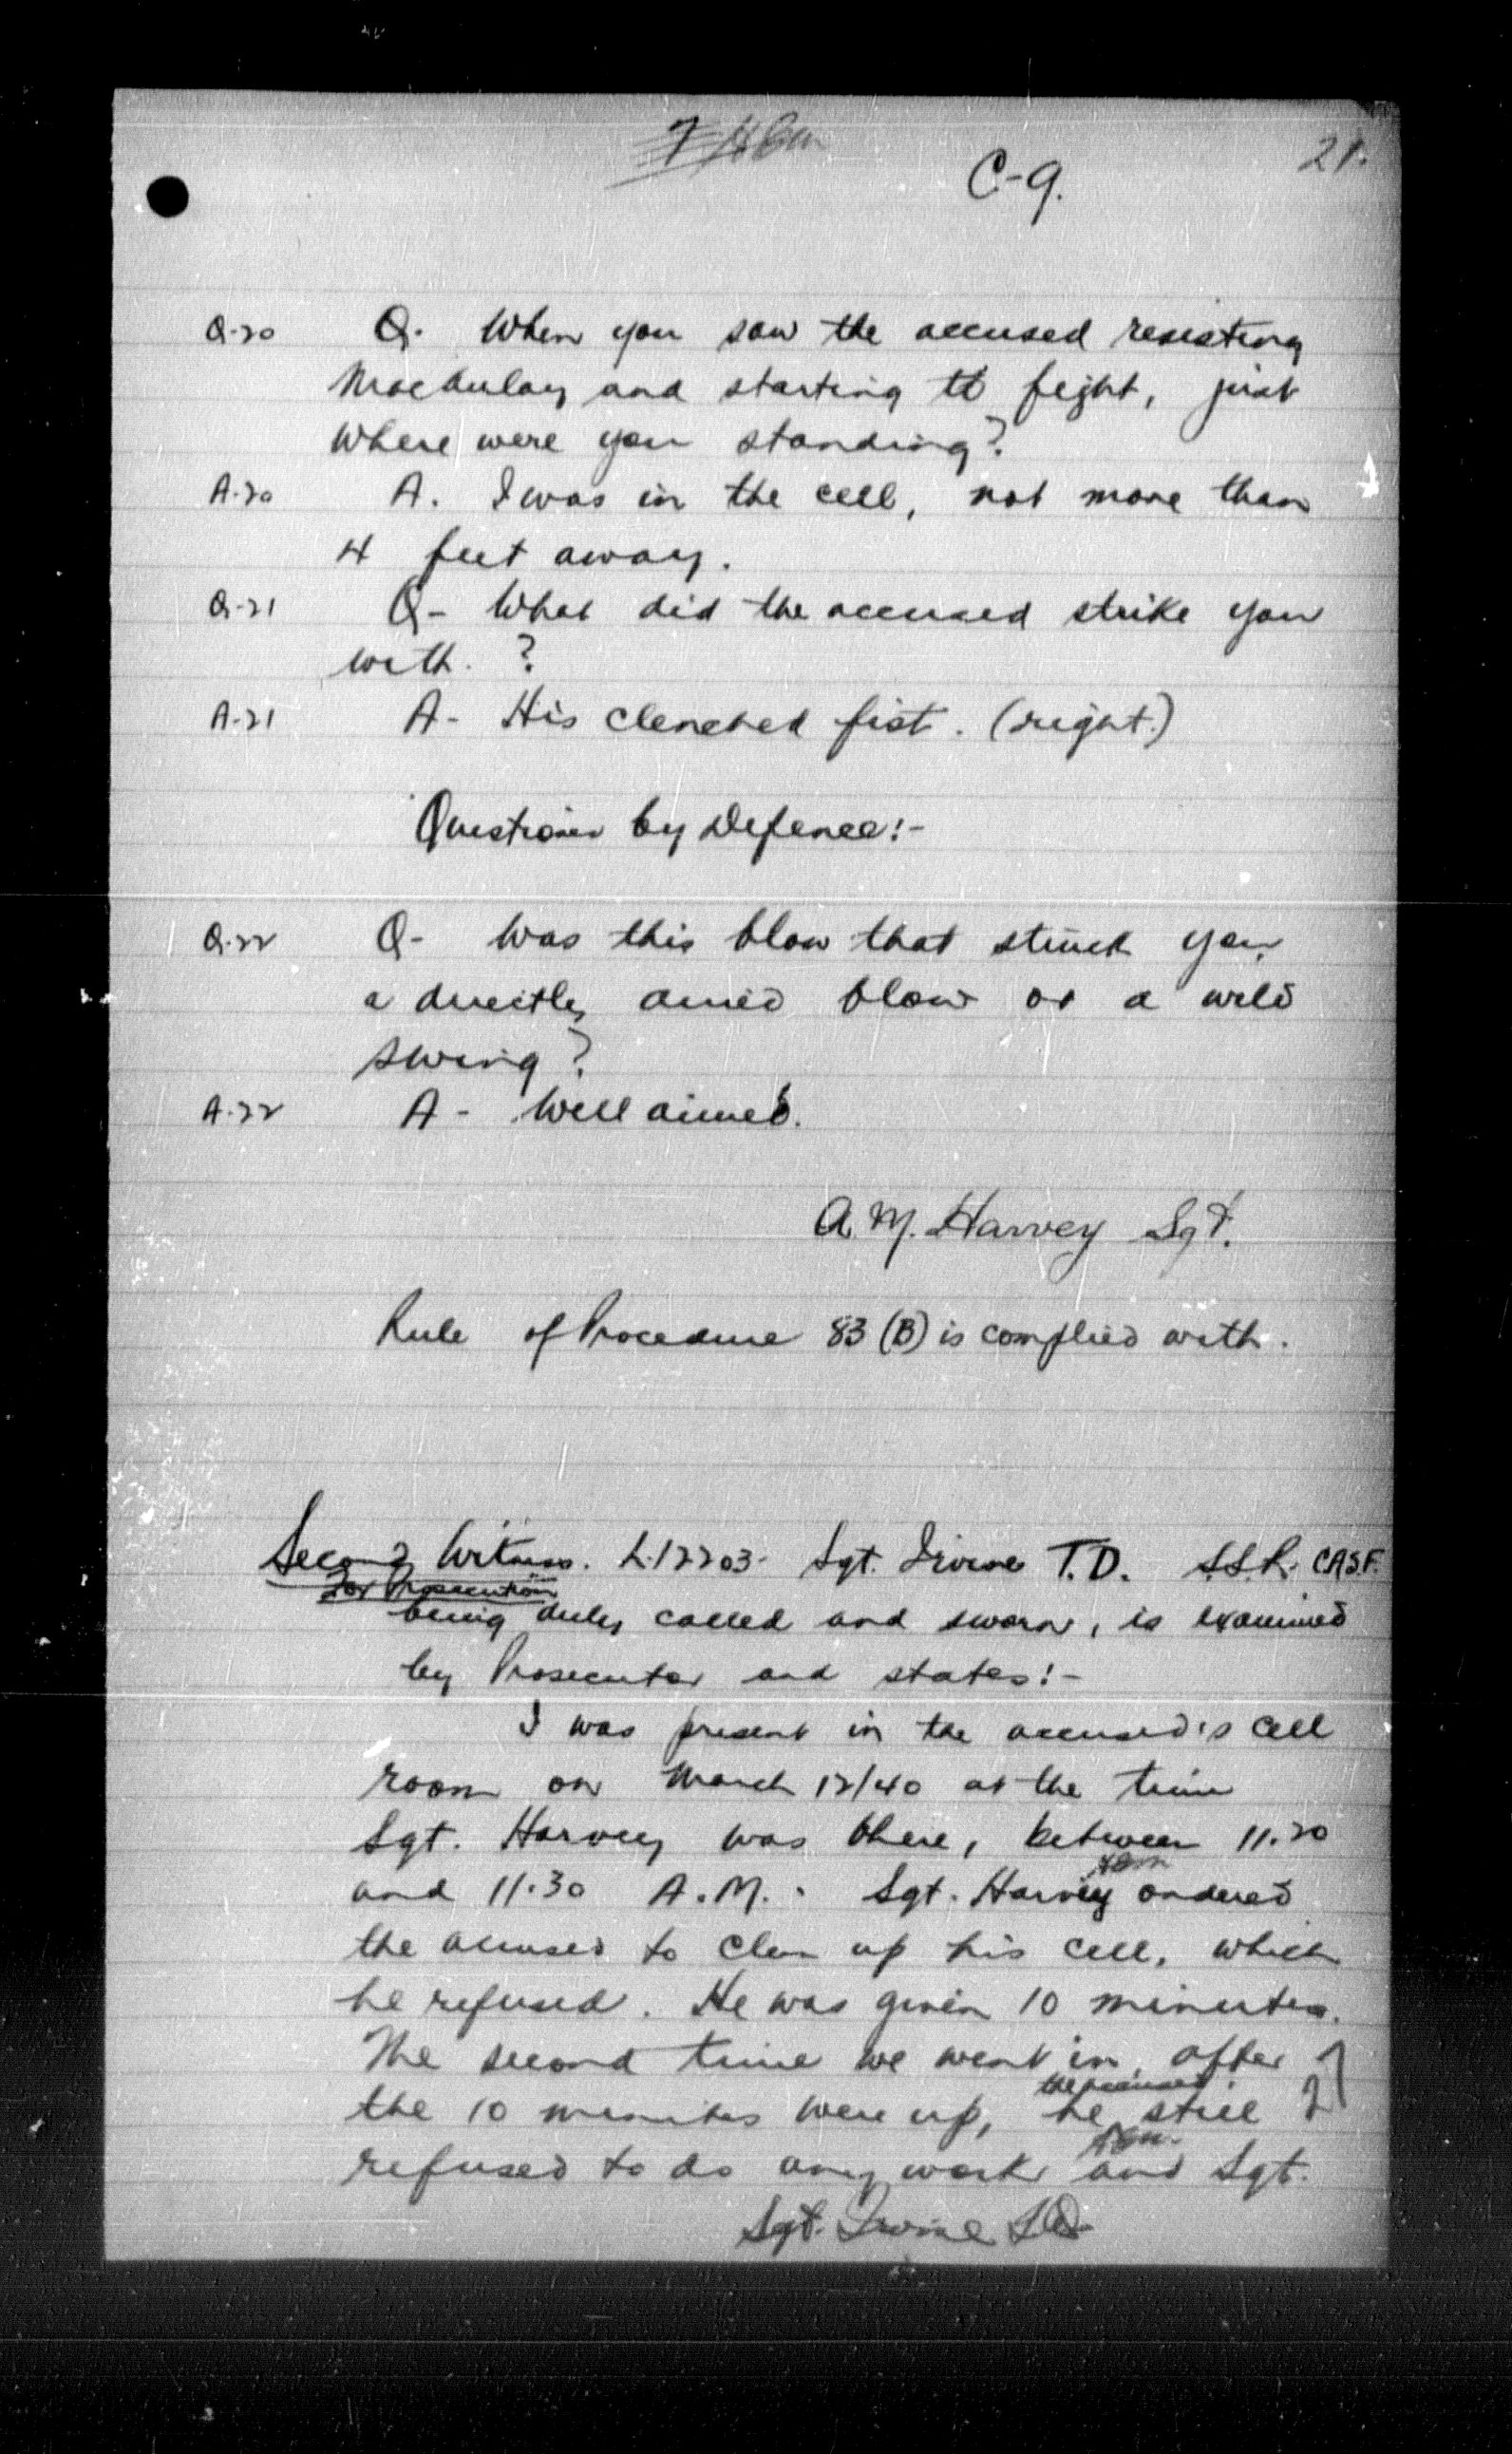 C-9.
21.
Q-20 Q. When you saw the accused resisting
MacAulay and starting to fight, just
where were you standing?
A-20 A. I was in the cell, not more than
4 feet away.
Q-21 Q- What did the accused strike you
with. ?
A-21 A- His clenched fist. (right.)
Questions by Defence:-
Q-22 Q- Was this blow that struck you,
a directly aimed blow or a wild
swing?
A-22 A- Well aimed.
A. M. Harvey Sgt.
Rule of Procedure 83 (B) is complied with.
Second Witness. L.12203- Sgt. Irvine T.D. S.S.R. C.A.S.F.
For Prosecution
being duly called and sworn, is examined
by Prosecutor and states:-
I was present in the accused's cell
room on March 12/40 at the time
Sgt. Harvey was there, between 11.20
and 11.30 A.M. Sgt. Harvey ordered
the accused to clean up his cell, which
he refused. He was given 10 minutes.
The second time we went in, after
the accused
the 10 minutes were up, he still
refused to do any work and Sgt.
Sgt. Irvine T.D.